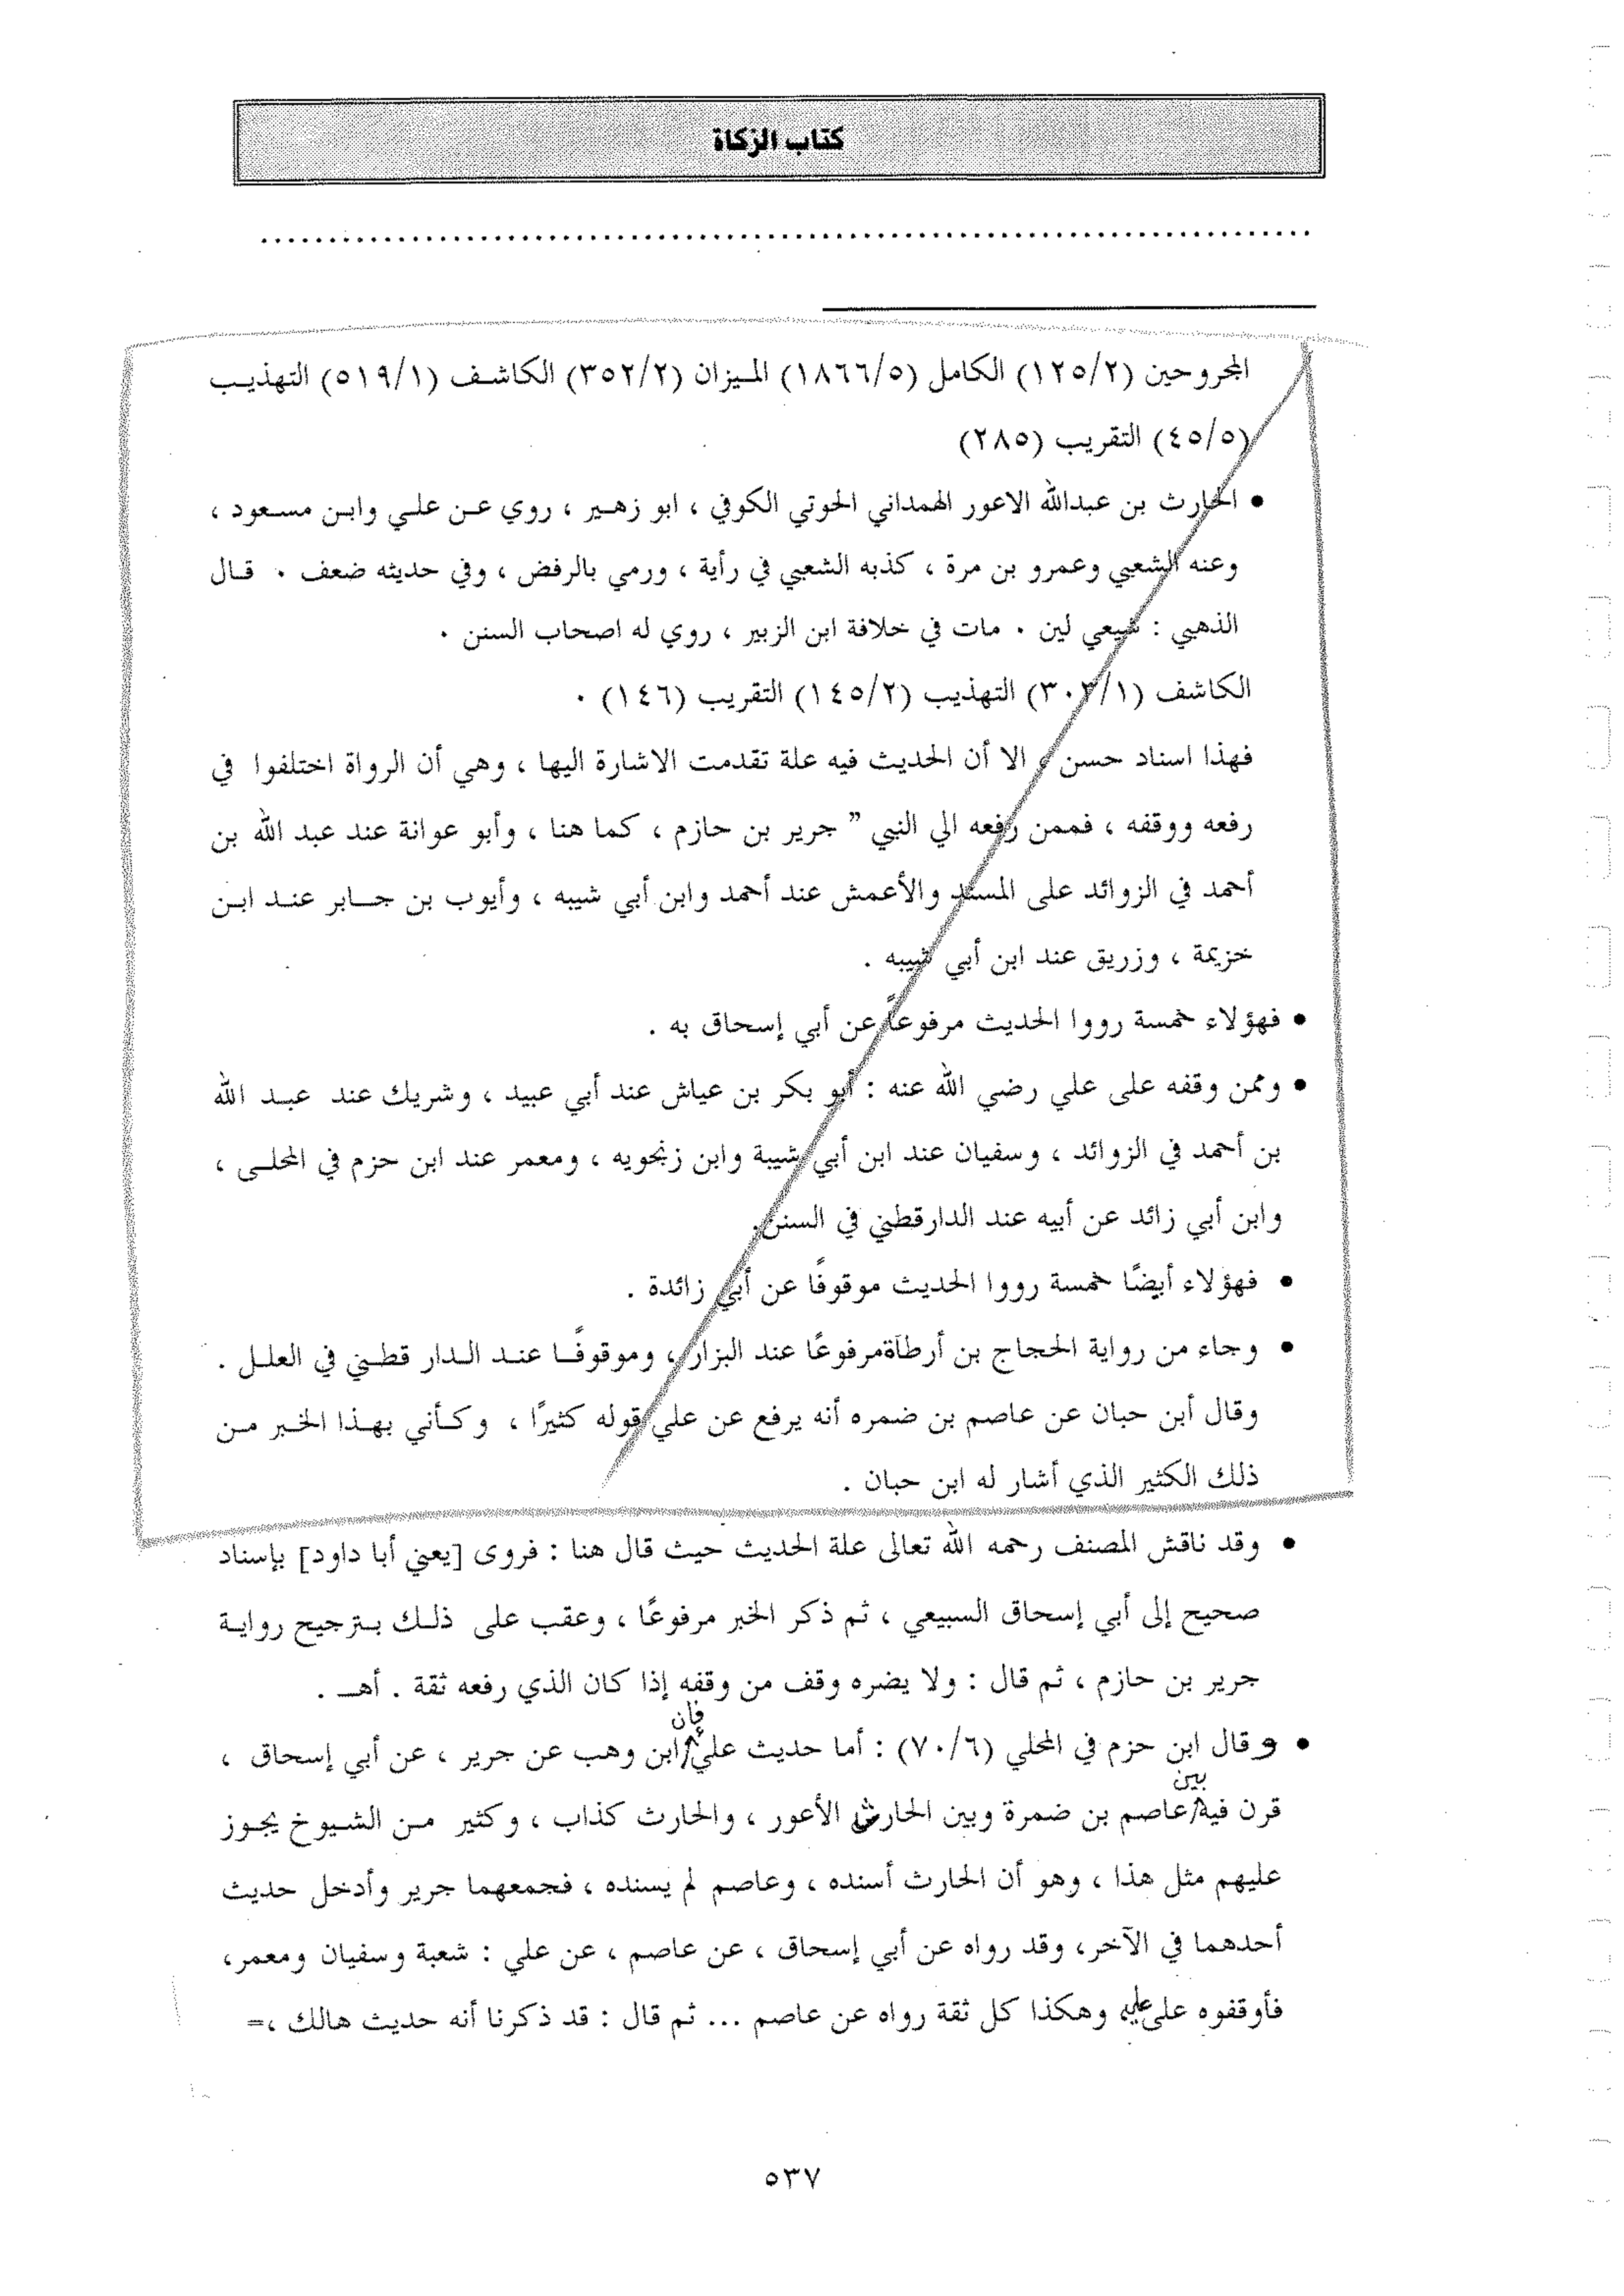 كتاب الزكاة
المجروحين (١٢٥/٢) الكامل (١٨٦٦/٥) الميزان (٣٥٢/٢) الكاشف (٥١٩/١) التهذيب
(٤٥/٥) التقريب (٢٨٥)
• الحارث بن عبدالله الاعور الهمداني الحوتي الكوفي ، ابو زهير ، روي عن علي وابن مسعود ،
وعنه الشعبي وعمرو بن مرة ، كذبه الشعبي في رأية ، ورمي بالرفض ، وفي حديثه ضعف . قال
الذهبي : شيعي لين . مات في خلافة ابن الزبير ، روي له اصحاب السنن .
الكاشف (٣٠٣/١) التهذيب (١٤٥/٢) التقريب (١٤٦) .
فهذا اسناد حسن ، الا أن الحديث فيه علة تقدمت الاشارة اليها ، وهي أن الرواة اختلفوا في
رفعه ووقفه ، فممن رفعه الي النبي " جرير بن حازم ، كما هنا ، وأبو عوانة عند عبد الله بن
أحمد في الزوائد على المسند والأعمش عند أحمد وابن أبي شيبه ، وأيوب بن جابر عند ابن
خزيمة ، وزريق عند ابن أبي شيبه .
• فهؤلاء خمسة رووا الحديث مرفوعاً عن أبي إسحاق به .
• وممن وقفه على علي رضي الله عنه : أبو بكر بن عياش عند أبي عبيد ، وشريك عند عبد الله
بن أحمد في الزوائد ، وسفيان عند ابن أبي شيبة وابن زنجويه ، ومعمر عند ابن حزم في المحلى ،
وابن أبي زائد عن أبيه عند الدارقطني في السنن.
• فهؤلاء أيضًا خمسة رووا الحديث موقوفًا عن أبي زائدة .
• وجاء من رواية الحجاج بن أرطاةمرفوعًا عند البزار ، وموقوفًا عند الدار قطني في العلل .
وقال أبن حبان عن عاصم بن ضمره أنه يرفع عن علي قوله كثيرًا ، وكأني بهذا الخبر من
ذلك الكثير الذي أشار له ابن حبان .
• وقد ناقش المصنف رحمه الله تعالى علة الحديث حيث قال هنا : فروى [يعني أبا داود] بإسناد
صحيح إلى أبي إسحاق السبيعي ، ثم ذكر الخبر مرفوعًا ، وعقب على ذلك بترجيح رواية
جرير بن حازم ، ثم قال : ولا يضره وقف من وقفه إذا كان الذي رفعه ثقة . أهـ .
فإن
• وقال ابن حزم في المحلي (٧٠/٦) : أما حديث علي ابن وهب عن جرير ، عن أبي إسحاق ،
بين
قرن فيه عاصم بن ضمرة وبين الحارث الأعور ، والحارث كذاب ، وكثير من الشيوخ يجوز
عليهم مثل هذا ، وهو أن الحارث أسنده ، وعاصم لم يسنده ، فجمعهما جرير وأدخل حديث
أحدهما في الآخر، وقد رواه عن أبي إسحاق ، عن عاصم ، عن علي : شعبة وسفيان ومعمر،
فأوقفوه على علي، وهكذا كل ثقة رواه عن عاصم ... ثم قال : قد ذكرنا أنه حديث هالك ،=
٥٣٧